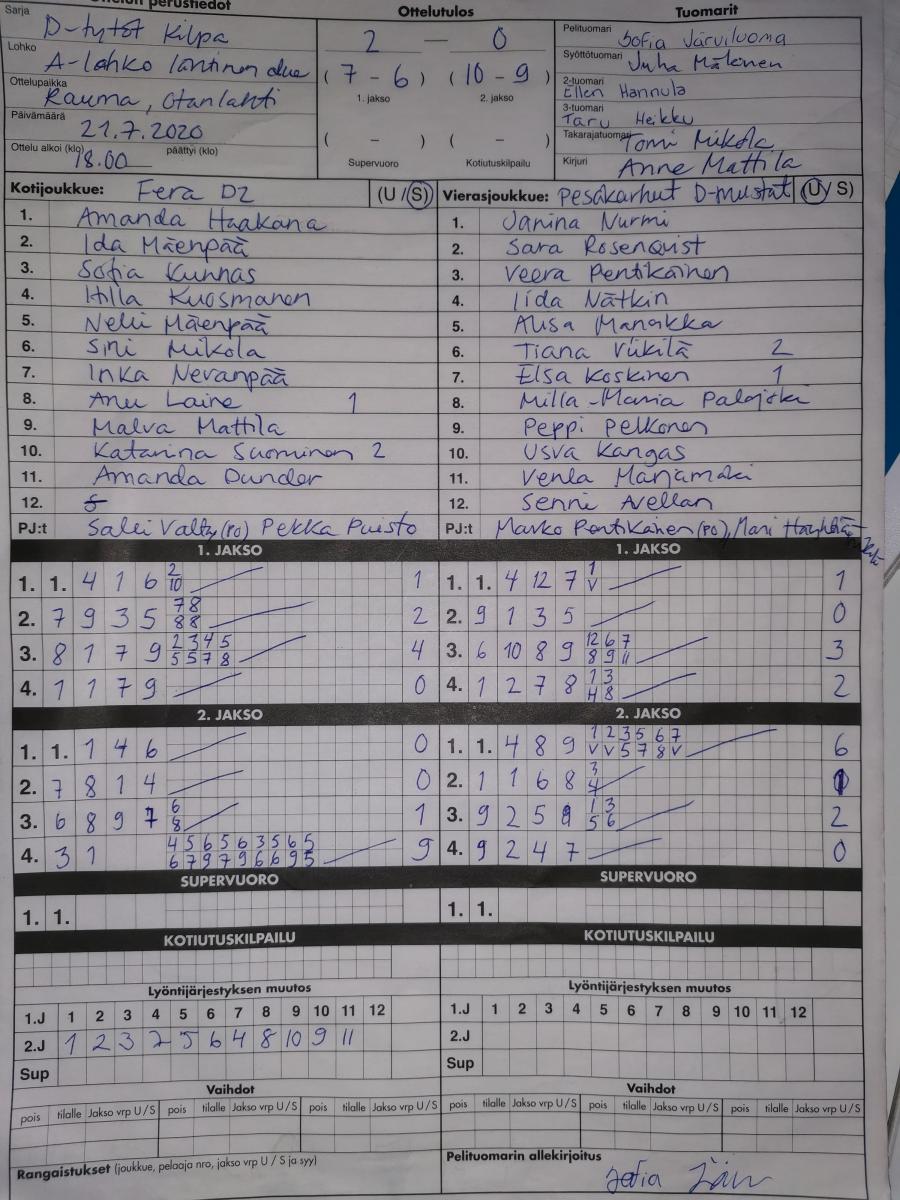 Ottelun perustiedot
Ottelutulos
Tuomarit
Sarja
D-tytöt Kilpa
2 — 0
Pelituomari
Sofia Järviluoma
Lohko
A-lohko läntinen alue
(7 - 6) (10 - 9)
Syöttötuomari
Juha Mäkinen
Ottelupaikka
Rauma, Otanlahti
1. jakso 2. jakso
2-tuomari
Ellen Hannula
Päivämäärä
21.7.2020
( - ) ( - )
3-tuomari
Taru Heikku
Ottelu alkoi (klo) 18.00 päättyi (klo)
Supervuoro Kotiutuskilpailu
Takarajatuomari Tomi Mikola
Kirjuri Anne Mattila
Kotijoukkue: Fera D2 (U / S)
1. Amanda Haakana
2. Ida Mäenpää
3. Sofia Kunnas
4. Hilla Kuosmanen
5. Nelli Mäenpää
6. Sini Mikola
7. Inka Nevanpää
8. Anu Laine 1
9. Malva Mattila
10. Katarina Suominen 2
11. Amanda Dunder
12.
PJ:t Pekka Puisto
Vierasjoukkue: Pesäkarhut D-mustat (U / S)
1. Janina Nurmi
2. Sara Rosenqvist
3. Veera Pentikäinen
4. Iida Nätkin
5. Alisa Manaikka
6. Tiana Viikilä 2
7. Elsa Koskinen 1
8. Milla-Maria
9. Peppi Pelkonen
10. Usva Kangas
11. Venla Marjamäki
12. Senni Avellan
PJ:t Marko Pentikäinen (PO),
1. JAKSO
1. 1. 4 1 6 2 1
10
2. 7 9 3 5 7 8 2
8 8
3. 8 1 7 9 2 3 4 5 4
5 5 7 8
4. 1 1 7 9 0
1. JAKSO
1. 1. 4 12 7 1 1
V
2. 9 1 3 5 0
3. 6 10 8 9 12 6 7 3
8 9 11
4. 1 2 7 8 1 3 2
4 8
2. JAKSO
1. 1. 1 4 6 0
2. 7 8 1 4 0
3. 6 8 9 7 6 1
8
4. 3 1 4 5 6 5 6 3 5 6 5 9
6 7 9 7 9 6 6 9 5
2. JAKSO
1. 1. 4 8 9 1 2 3 5 6 7 6
V V 5 7 8 V
2. 1 1 6 8 3 1
4
3. 9 2 5 9 1 3 2
5 6
4. 9 2 4 7 0
SUPERVUORO
1. 1.
SUPERVUORO
1. 1.
KOTIUTUSKILPAILU
KOTIUTUSKILPAILU
Lyöntijärjestyksen muutos
1.J 1 2 3 4 5 6 7 8 9 10 11 12
2.J 1 2 3 7 5 6 4 8 10 9 11
Sup
Lyöntijärjestyksen muutos
1.J 1 2 3 4 5 6 7 8 9 10 11 12
2.J
Sup
Vaihdot
pois tilalle Jakso vrp U / S pois tilalle Jakso vrp U / S pois tilalle Jakso vrp U / S
Vaihdot
pois tilalle Jakso vrp U / S pois tilalle Jakso vrp U / S pois tilalle Jakso vrp U / S
Rangaistukset (joukkue, pelaaja nro, jakso vrp U / S ja syy)
Pelituomarin allekirjoitus
Sofia